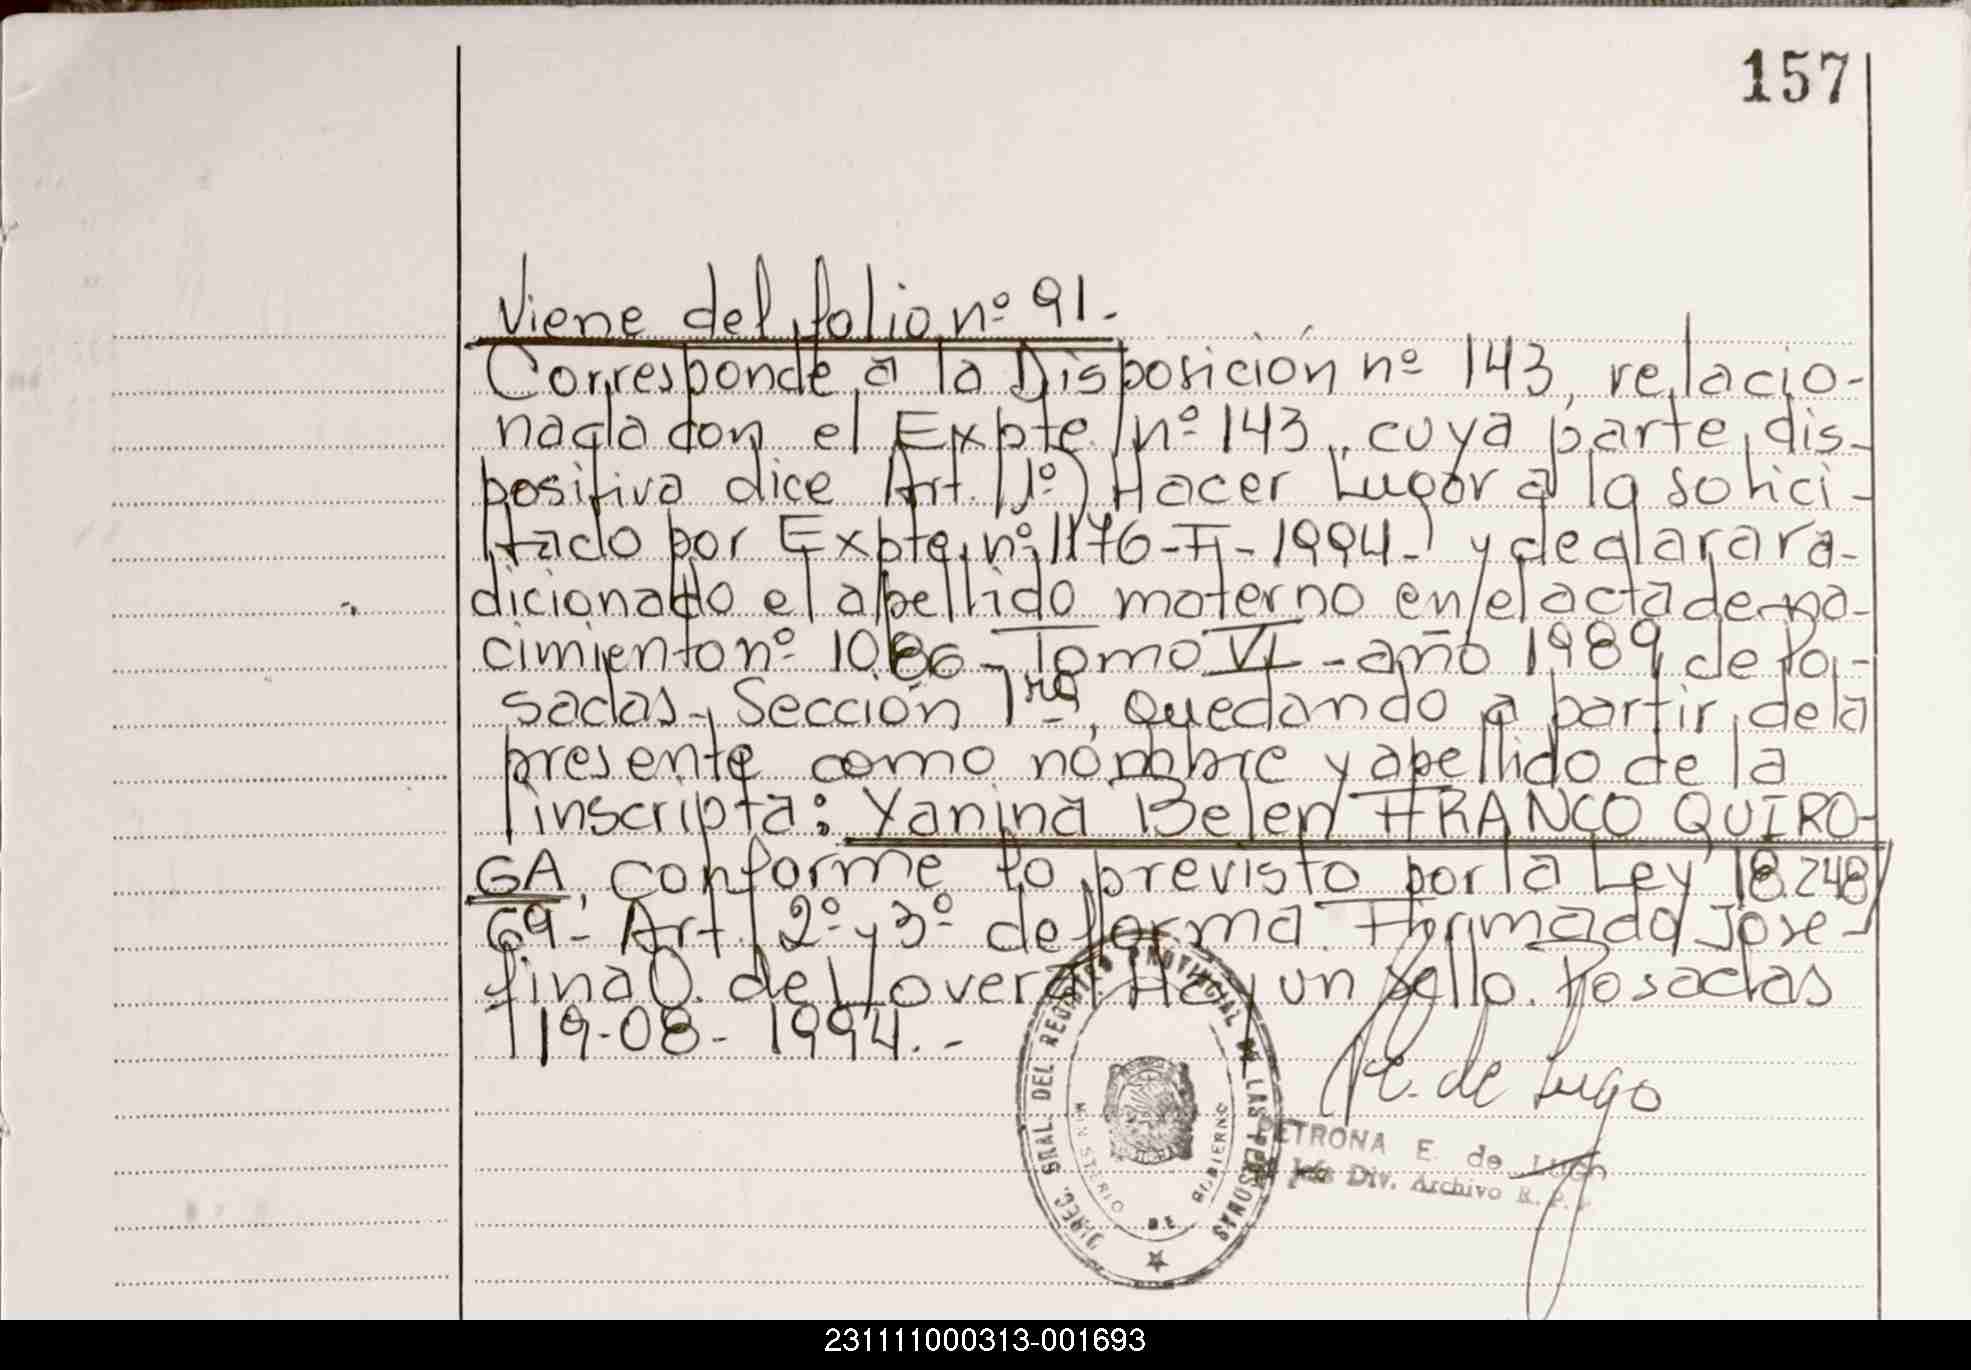 157
Viene del folio nº 91.-
Corresponde a la Disposición nº 143, relacio-
nada con el Expte. nº 143, cuya parte dis-
positiva dice Art. 1º) Hacer Lugar a lo solici-
tado por Expte. nº 1176-F-1994- y declarar a-
dicionado el apellido materno en el acta de na-
cimiento nº 1086- Tomo VI - año 1989 de Po-
sadas, Sección 1ra, quedando a partir de la
presente como nombre y apellido de la
inscripta: Yanina Belen FRANCO QUIRO-
GA, conforme lo previsto por la Ley 18.248/
69- Art. 2º y 3º de forma. Firmado Jose-
fina O. de Lovera. Hay un Sello. Posadas
19-08-1994.-
DIREC. GRAL. DEL REGISTRO PROVINCIAL DE LAS PERSONAS
MINISTERIO DE GOBIERNO
P.E. de Lugo
PETRONA E. de LUGO
Jefe Div. Archivo R. P.
231111000313-001693